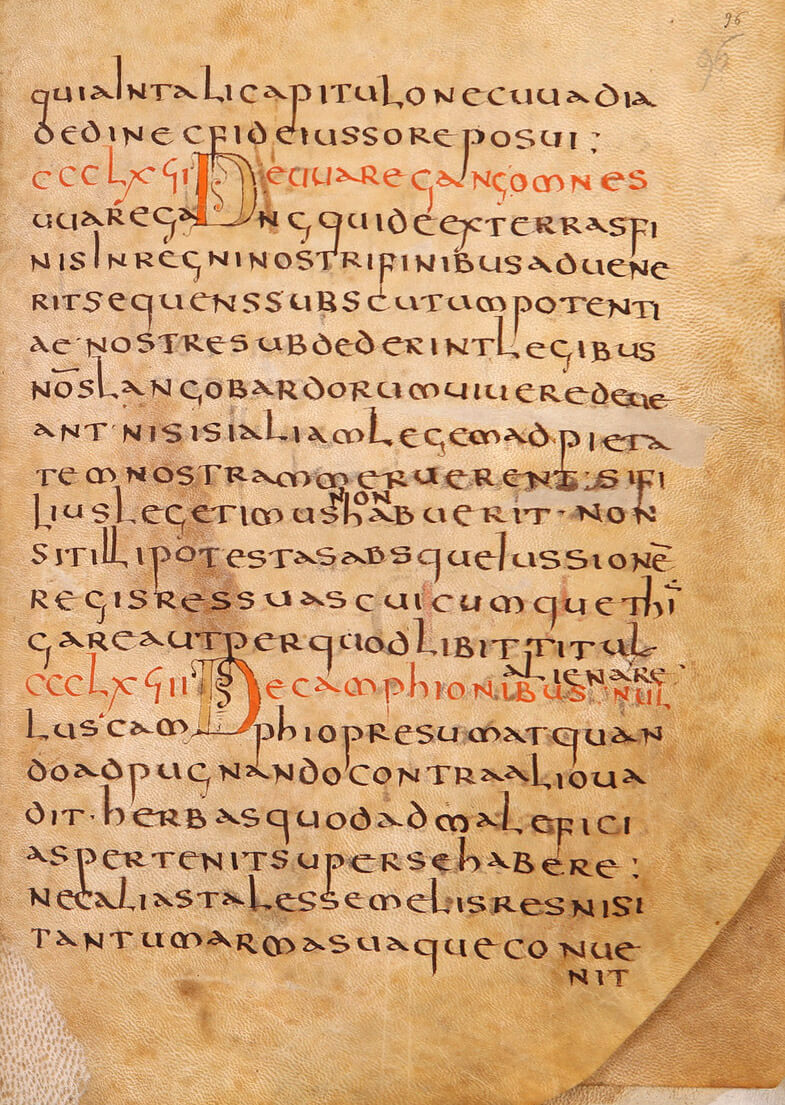 96
95
quia in tali capitulo nec uuadia
dedi nec fideiussore posui :
ccclxҁii De uuaregango omnes
uuaregang qui de exterras fi
nis in regni nostri finibus aduene
rit sequens sub scutum potenti
ae nostre subdederint legibus
nōs langobardorum uiuere debe
ant nisi si aliam legem ad pieta
tem nostram meruerent : si fi
lius legetimus non habuerit · non
sit illi potestas absque iussionē
regis res suas cuicumque thin
gare aut per quod libit titul
alienare
ccclxҁiii De camphionibus : nul
lus camphio presumat quan
do ad pugnando contra alio ua
dit · herbas quod ad malefici
as pertenit super se habere :
nec alias tales semelis res nisi
tantum arma sua que conue
nit